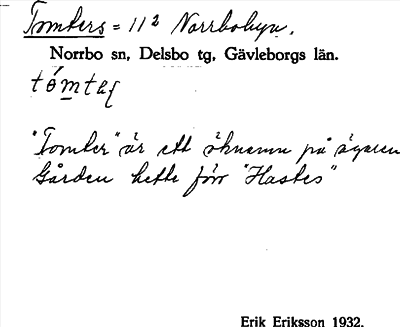 Tomters = 11² Norrbobyn.
Norrbo sn, Delsbo tg, Gävleborgs län.
"Tomter" är ett öknamn på ägaren
Gården hette förr "Hastes"
Erik Eriksson 1932.